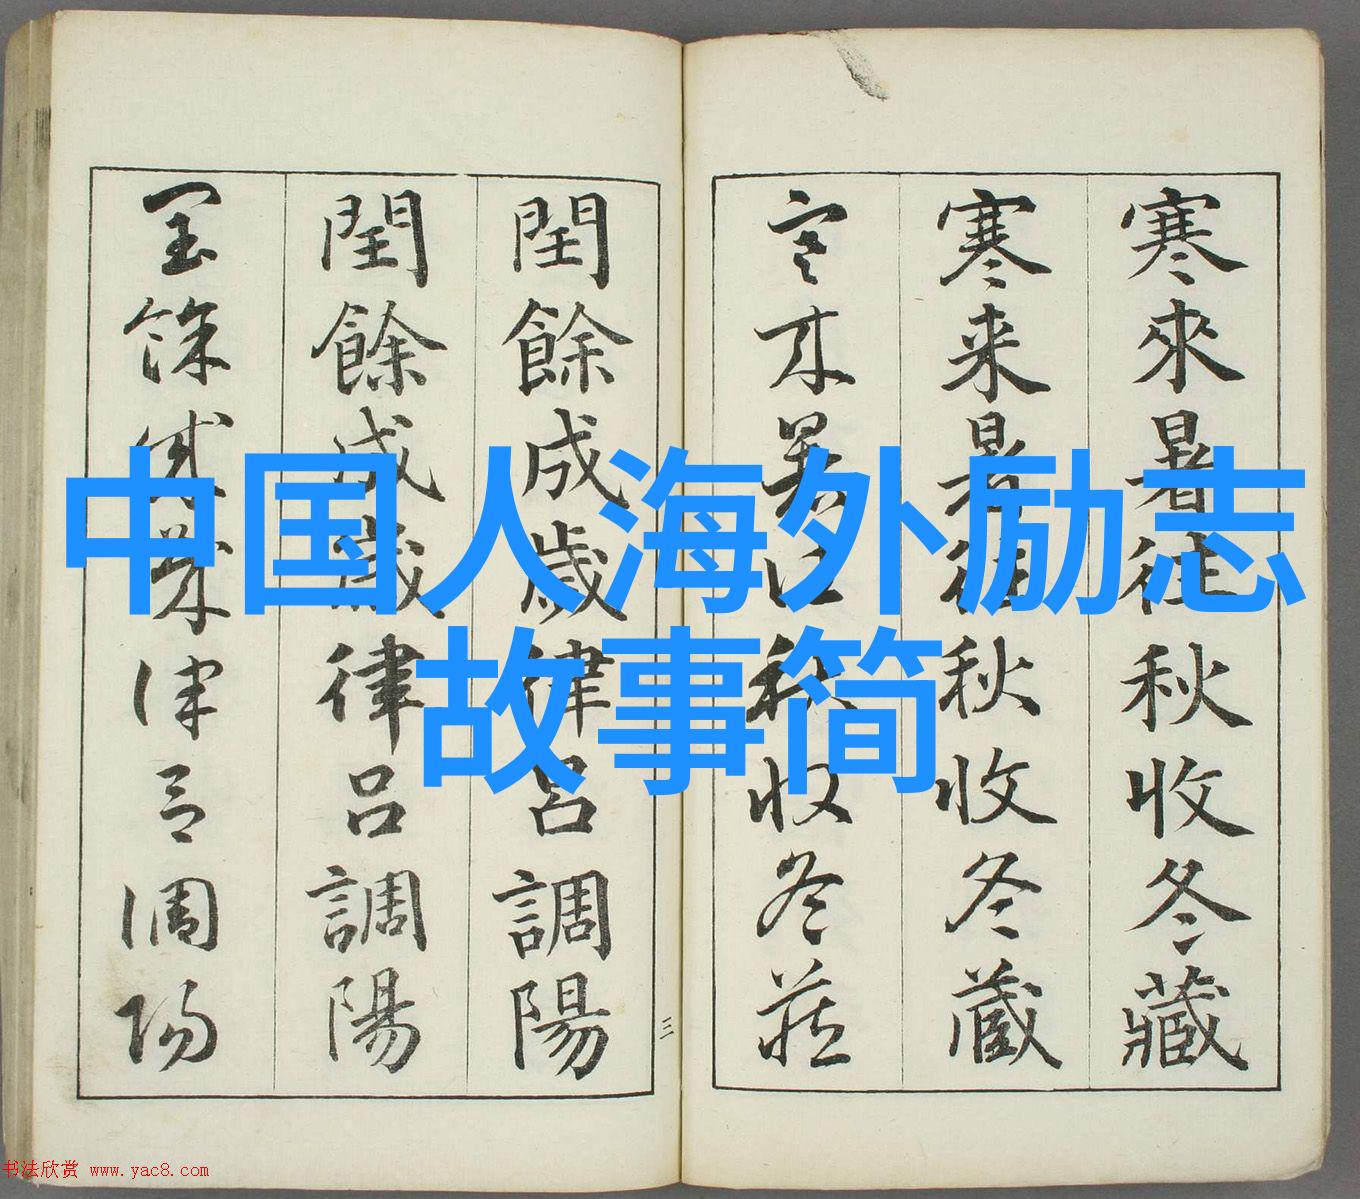 中国人海外励志
故事简
寒來暑往秋收冬藏
寒来暑往秋收冬蔵
寒来暑往秋收冬藏
三
閏餘成歲律呂調陽
閏餘成歲律呂調陽
閏餘成歲律呂調陽
书法欣赏 www.yac8.com